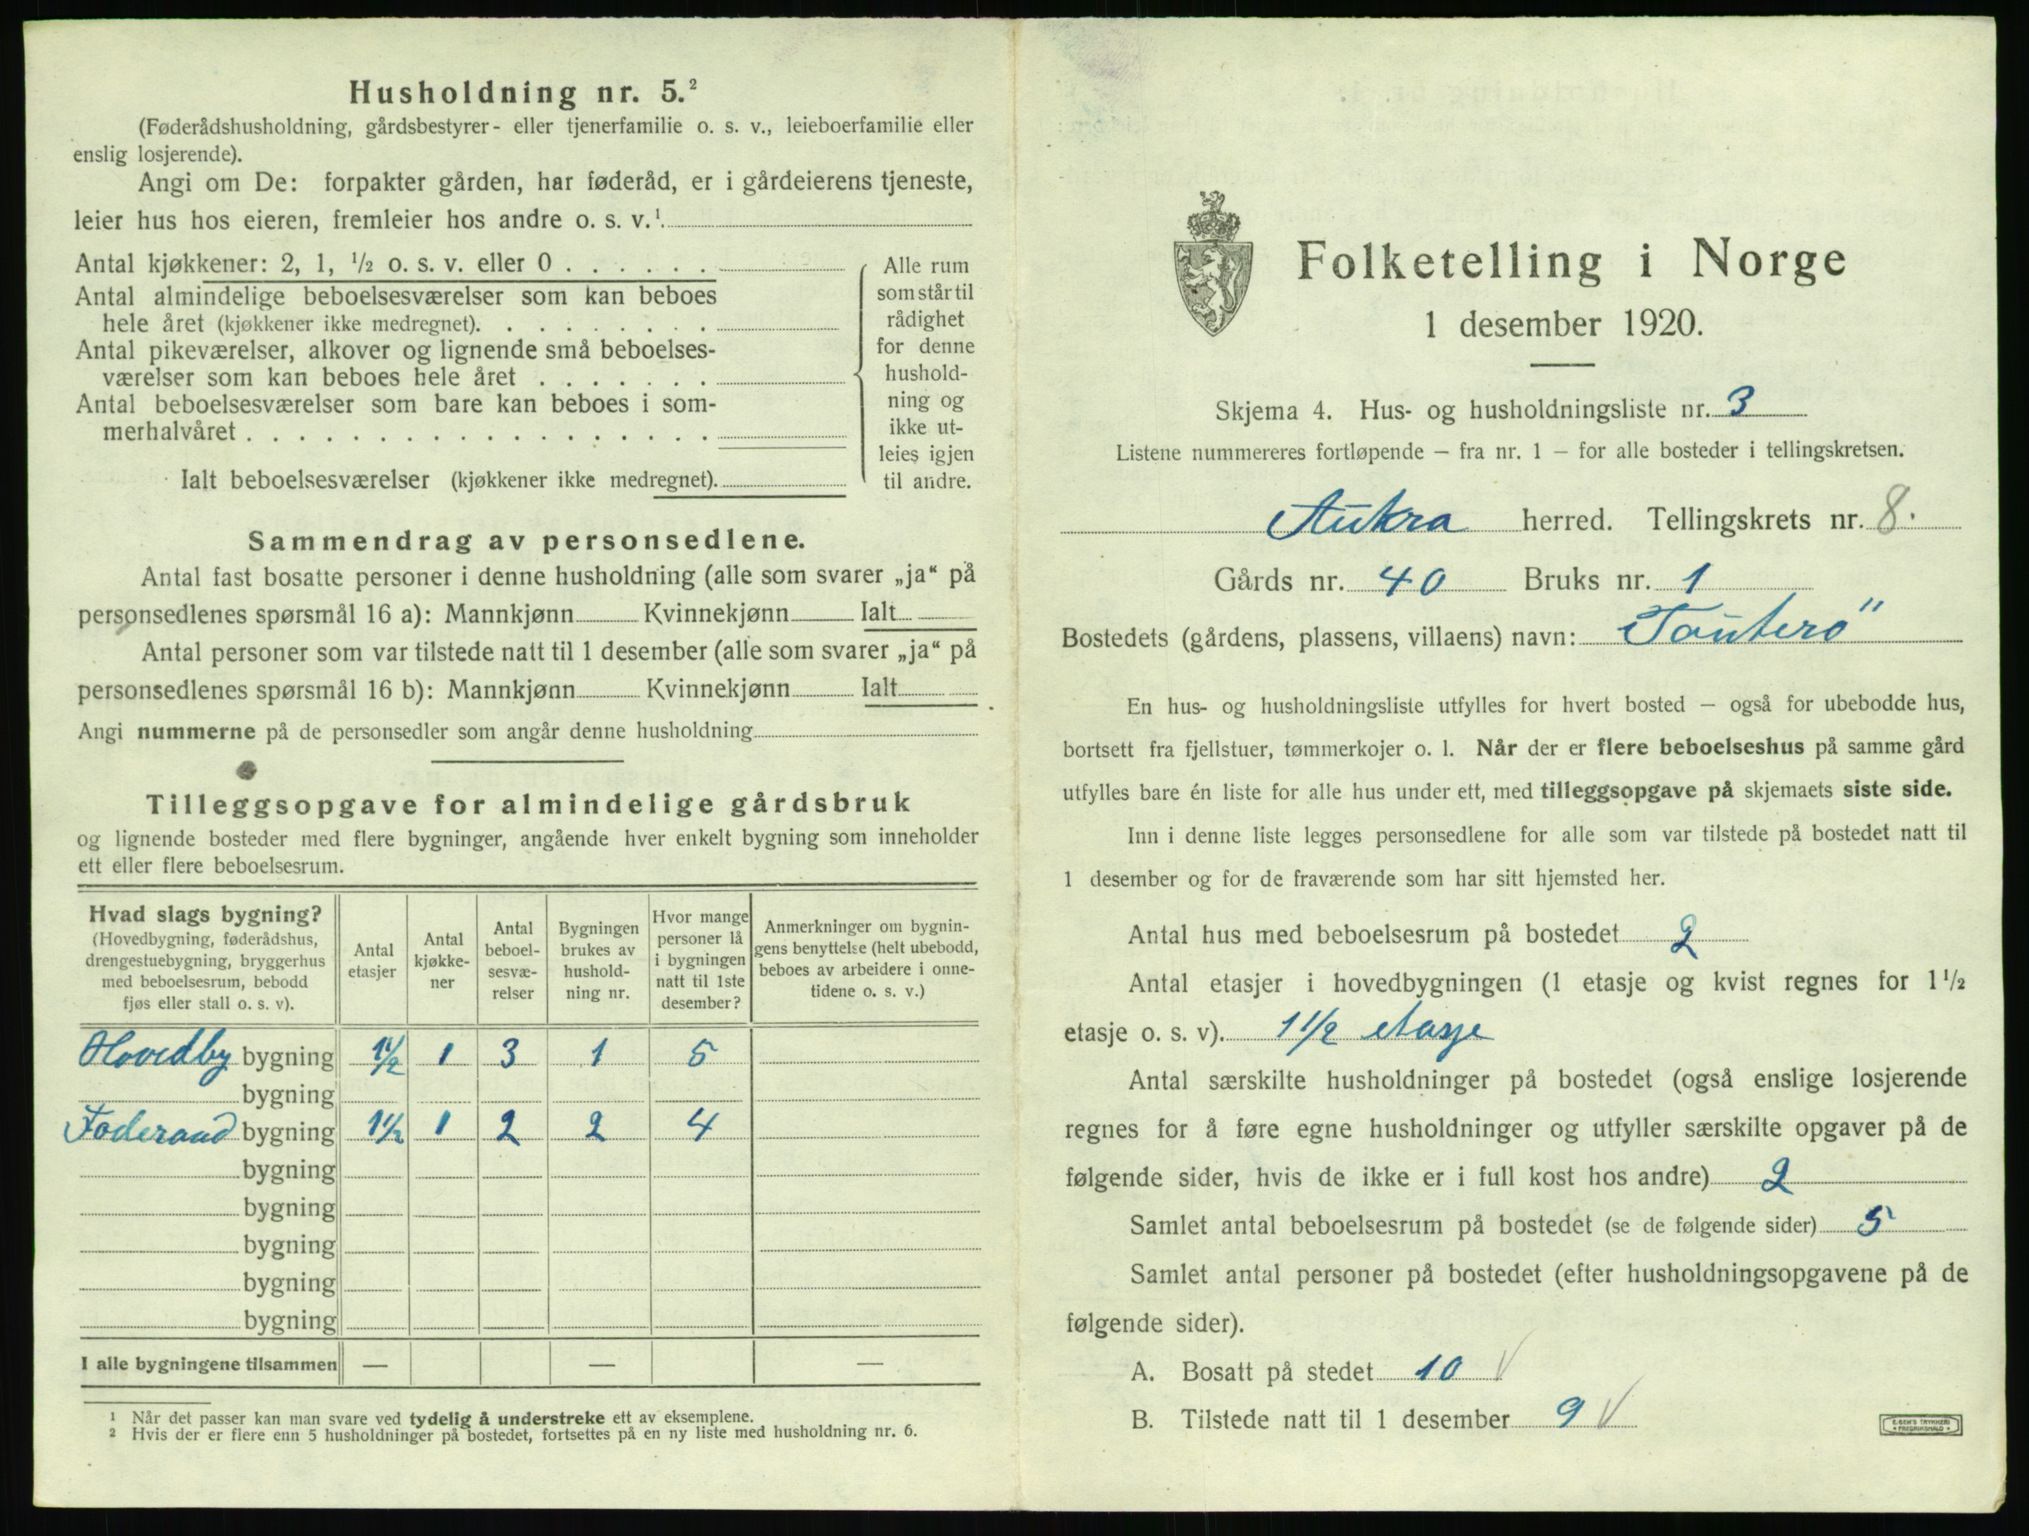 Husholdning nr. 5.²
(Føderådshusholdning, gårdsbestyrer- eller tjenerfamilie o. s. v., leieboerfamilie eller
enslig losjerende).
Angi om De: forpakter gården, har føderåd, er i gårdeierens tjeneste,
leier hus hos eieren, fremleier hos andre o. s. v.¹
Antal kjøkkener: 2, 1, ½ o. s. v. eller 0 . . . . . .
Antal almindelige beboelsesværelser som kan beboes
hele året (kjøkkener ikke medregnet). . . . . . . . .
Antal pikeværelser, alkover og lignende små beboelses-
værelser som kan beboes hele året . . . . . . .
Antal beboelsesværelser som bare kan beboes i som-
merhalvåret . . . . . . . . . . . . . . . . .
Ialt beboelsesværelser (kjøkkener ikke medregnet).
Alle rum
som står til
rådighet
for denne
hushold-
ning og
ikke ut-
leies igjen
til andre.
Sammendrag av personsedlene.
Antal fast bosatte personer i denne husholdning (alle som svarer „ja“ på
personsedlenes spørsmål 16 a): Mannkjønn Kvinnekjønn Ialt
Antal personer som var tilstede natt til 1 desember (alle som svarer „ja“ på
personsedlenes spørsmål 16 b): Mannkjønn Kvinnekjønn Ialt
Angi nummerne på de personsedler som angår denne husholdning
Tilleggsopgave for almindelige gårdsbruk
og lignende bosteder med flere bygninger, angående hver enkelt bygning som inneholder
ett eller flere beboelsesrum.
Hvad slags bygning?
(Hovedbygning, føderådshus,
drengestuebygning, bryggerhus
med beboelsesrum, bebodd
fjøs eller stall o. s. v).
Antal
etasjer
Antal
kjøkke-
ner
Antal
beboel-
sesvæ-
relser
Bygningen
brukes av
hushold-
ning nr.
Hvor mange
personer lå
i bygningen
natt til 1ste
desember?
Anmerkninger om bygnin-
gens benyttelse (helt ubebodd,
beboes av arbeidere i onne-
tidene o. s. v.)
Hovedby bygning 1½ 1 3 1 5
bygning
Foderaad bygning 1½ 1 2 2 4
bygning
bygning
bygning
bygning
bygning
I alle bygningene tilsammen — — —
¹ Når det passer kan man svare ved tydelig å understreke ett av eksemplene.
² Hvis der er flere enn 5 husholdninger på bostedet, fortsettes på en ny liste med husholdning nr. 6.
Folketelling i Norge
1 desember 1920.
Skjema 4. Hus- og husholdningsliste nr. 3
Listene nummereres fortløpende – fra nr. 1 – for alle bosteder i tellingskretsen.
Aukra herred. Tellingskrets nr. 8.
Gårds nr. 40 Bruks nr. 1
Bostedets (gårdens, plassens, villaens) navn: Tauterö
En hus- og husholdningsliste utfylles for hvert bosted – også for ubebodde hus,
bortsett fra fjellstuer, tømmerkojer o. l. Når der er flere beboelseshus på samme gård
utfylles bare én liste for alle hus under ett, med tilleggsopgave på skjemaets siste side.
Inn i denne liste legges personsedlene for alle som var tilstede på bostedet natt til
1 desember og for de fraværende som har sitt hjemsted her.
Antal hus med beboelsesrum på bostedet 2
Antal etasjer i hovedbygningen (1 etasje og kvist regnes for 1½
etasje o. s. v). 1½ etasje
Antal særskilte husholdninger på bostedet (også enslige losjerende
regnes for å føre egne husholdninger og utfyller særskilte opgaver på de
følgende sider, hvis de ikke er i full kost hos andre) 2
Samlet antal beboelsesrum på bostedet (se de følgende sider) 5
Samlet antal personer på bostedet (efter husholdningsopgavene på de
følgende sider).
A. Bosatt på stedet 10 √
B. Tilstede natt til 1 desember 9 √
E. SEM'S TRYKKERI
FREDRIKSHALD